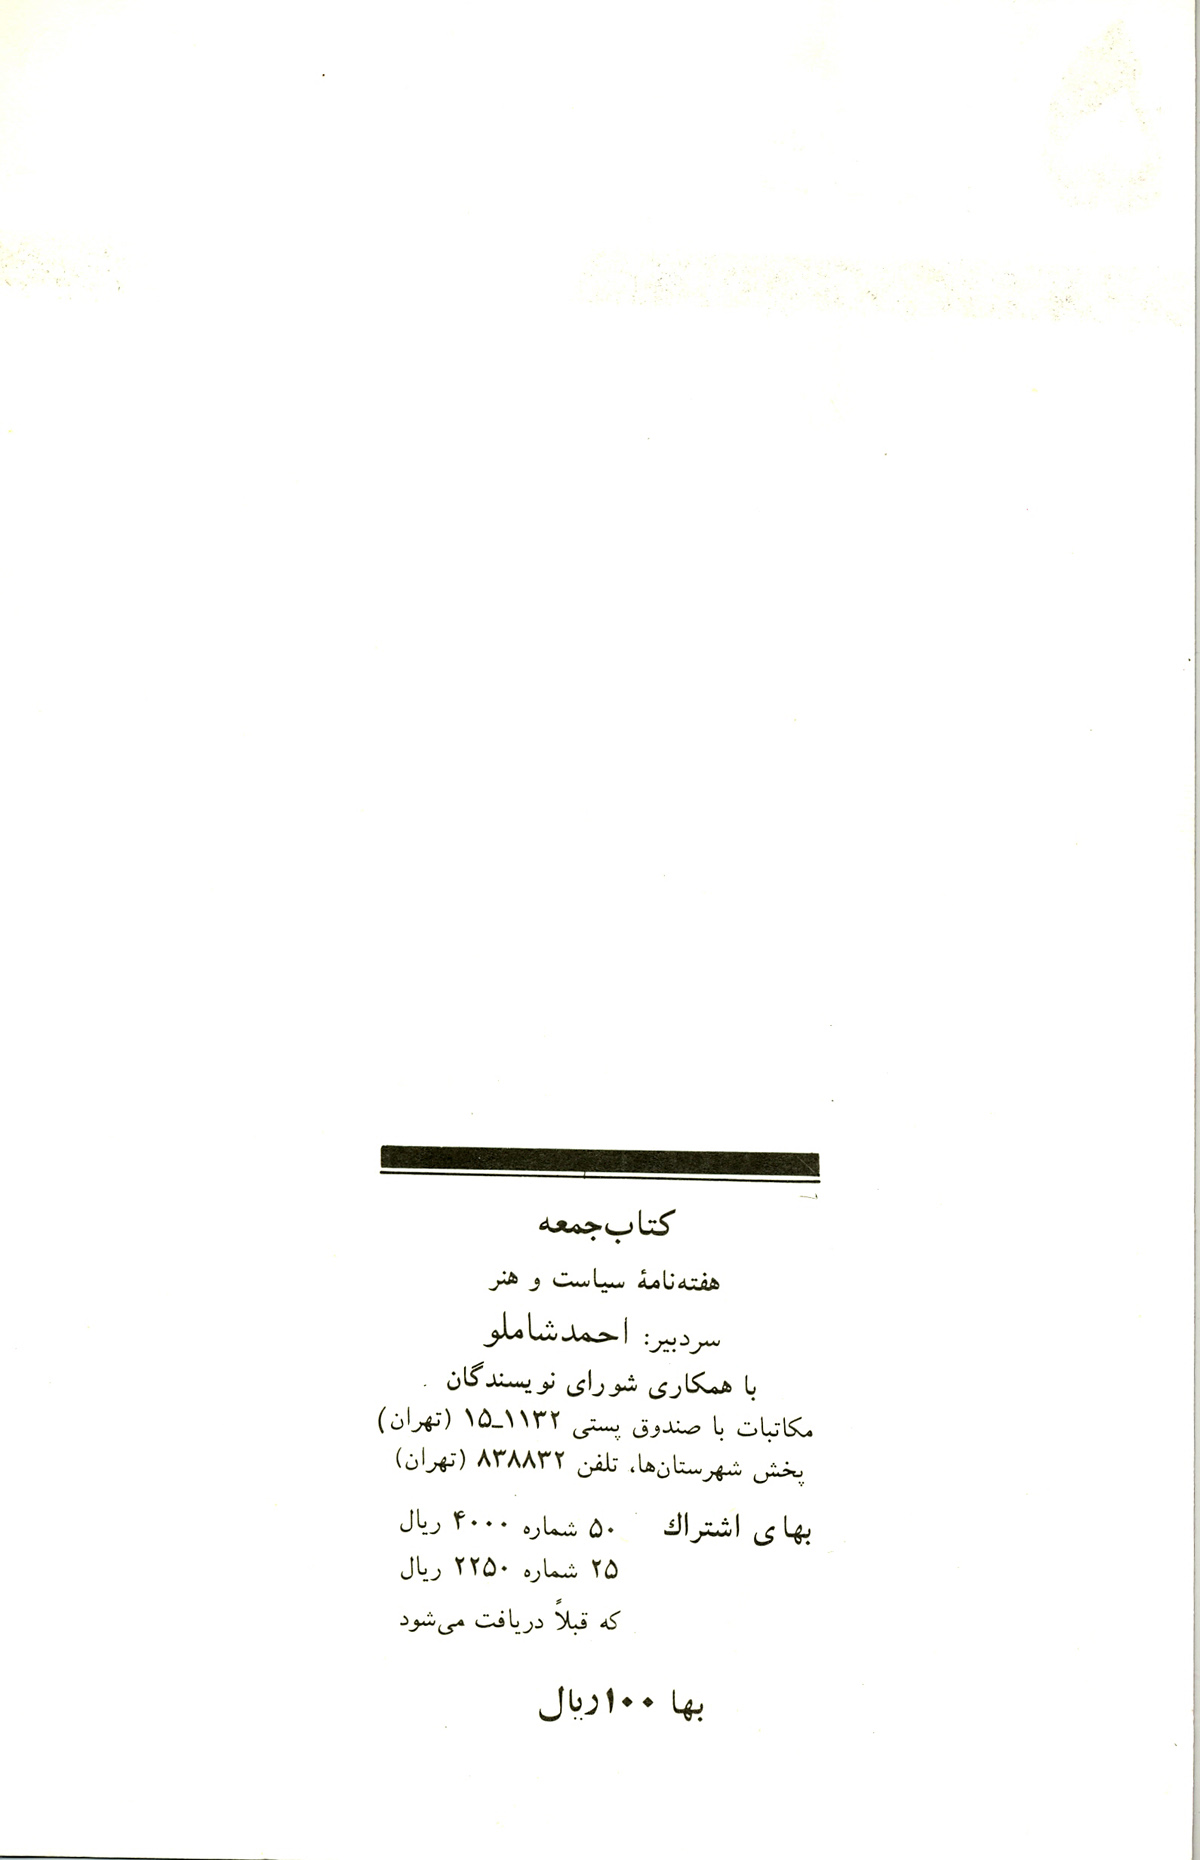 کتاب‌جمعه
هفته‌نامهٔ سیاست و هنر
سردبیر: احمدشاملو
با همکاری شورای نویسندگان
مکاتبات با صندوق پستی ۱۱۳۲-۱۵ (تهران)
پخش شهرستان‌ها، تلفن ۸۳۸۸۳۲ (تهران)
بهای اشتراك ۵۰ شماره ۴۰۰۰ ریال
۲۵ شماره ۲۲۵۰ ریال
که قبلاً دریافت می‌شود
بها ۱۰۰ریال